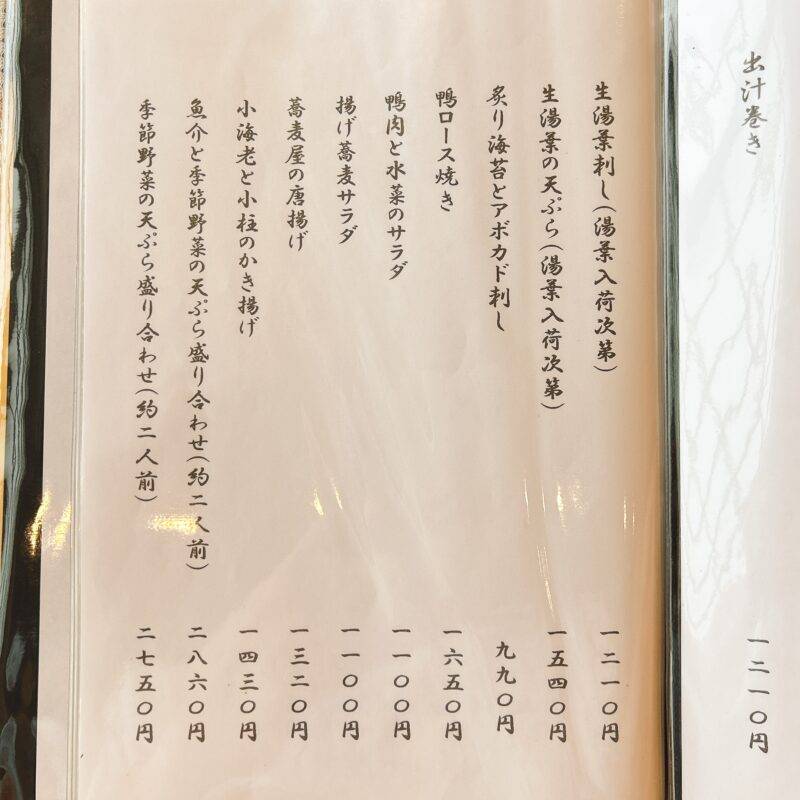 出汁巻き 一二一〇円
生湯葉刺し(湯葉入荷次第) 一二一〇円
生湯葉の天ぷら(湯葉入荷次第) 一五四〇円
炙り海苔とアボカド刺し 九九〇円
鴨ロース焼き 一六五〇円
鴨肉と水菜のサラダ 一一〇〇円
揚げ蕎麦サラダ 一一〇〇円
蕎麦屋の唐揚げ 一三二〇円
小海老と小柱のかき揚げ 一四三〇円
魚介と季節野菜の天ぷら盛り合わせ(約二人前) 二八六〇円
季節野菜の天ぷら盛り合わせ(約二人前) 二七五〇円